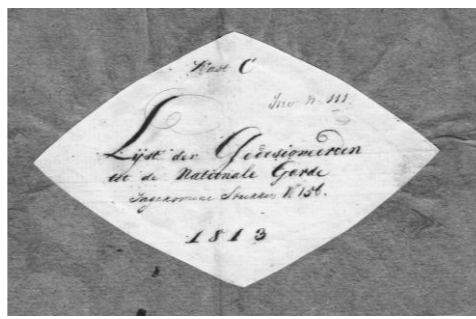 Kast C
Inv. N. 111
Lijst der Gedesigneerden
tot de Nationale Garde
Ingekomene Stukken N 156.
1813